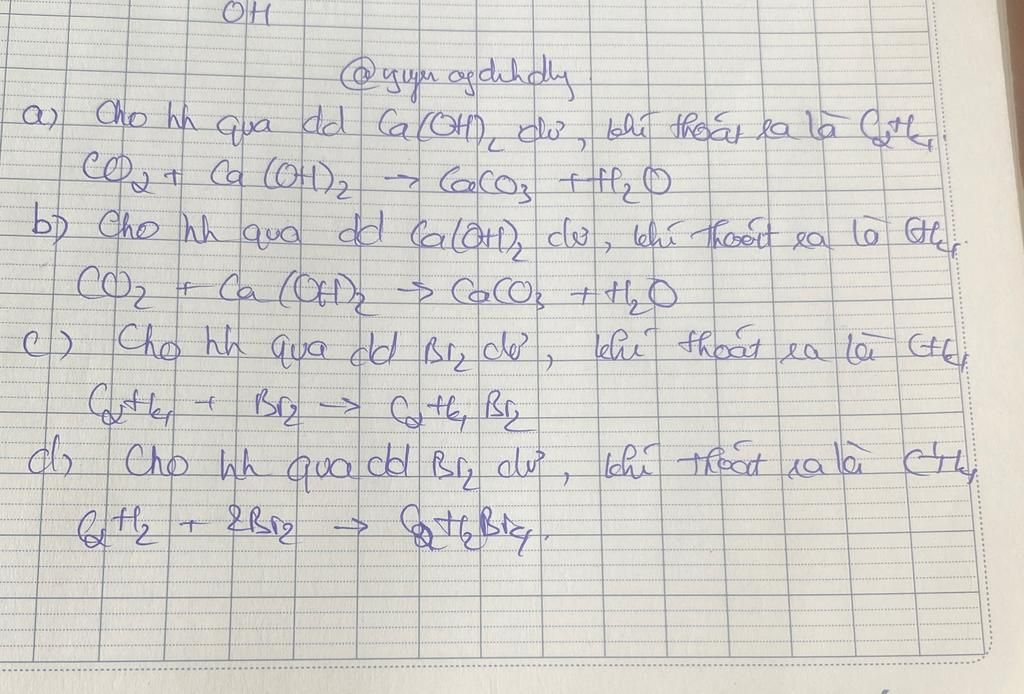 OH
a) Cho hh qua dd Ca(OH)₂ dư, khí thoát ra là C₂H₄
CO₂ + Ca(OH)₂ → CaCO₃ + H₂O
b) Cho hh qua dd Ca(OH)₂ dư, khí thoát ra là CH₄
CO₂ + Ca(OH)₂ → CaCO₃ + H₂O
c) Cho hh qua dd Br₂ dư, khí thoát ra là CH₄
C₂H₄ + Br₂ → C₂H₄Br₂
d) Cho hh qua dd Br₂ dư, khí thoát ra là CH₄
C₂H₂ + 2Br₂ → C₂H₂Br₄.